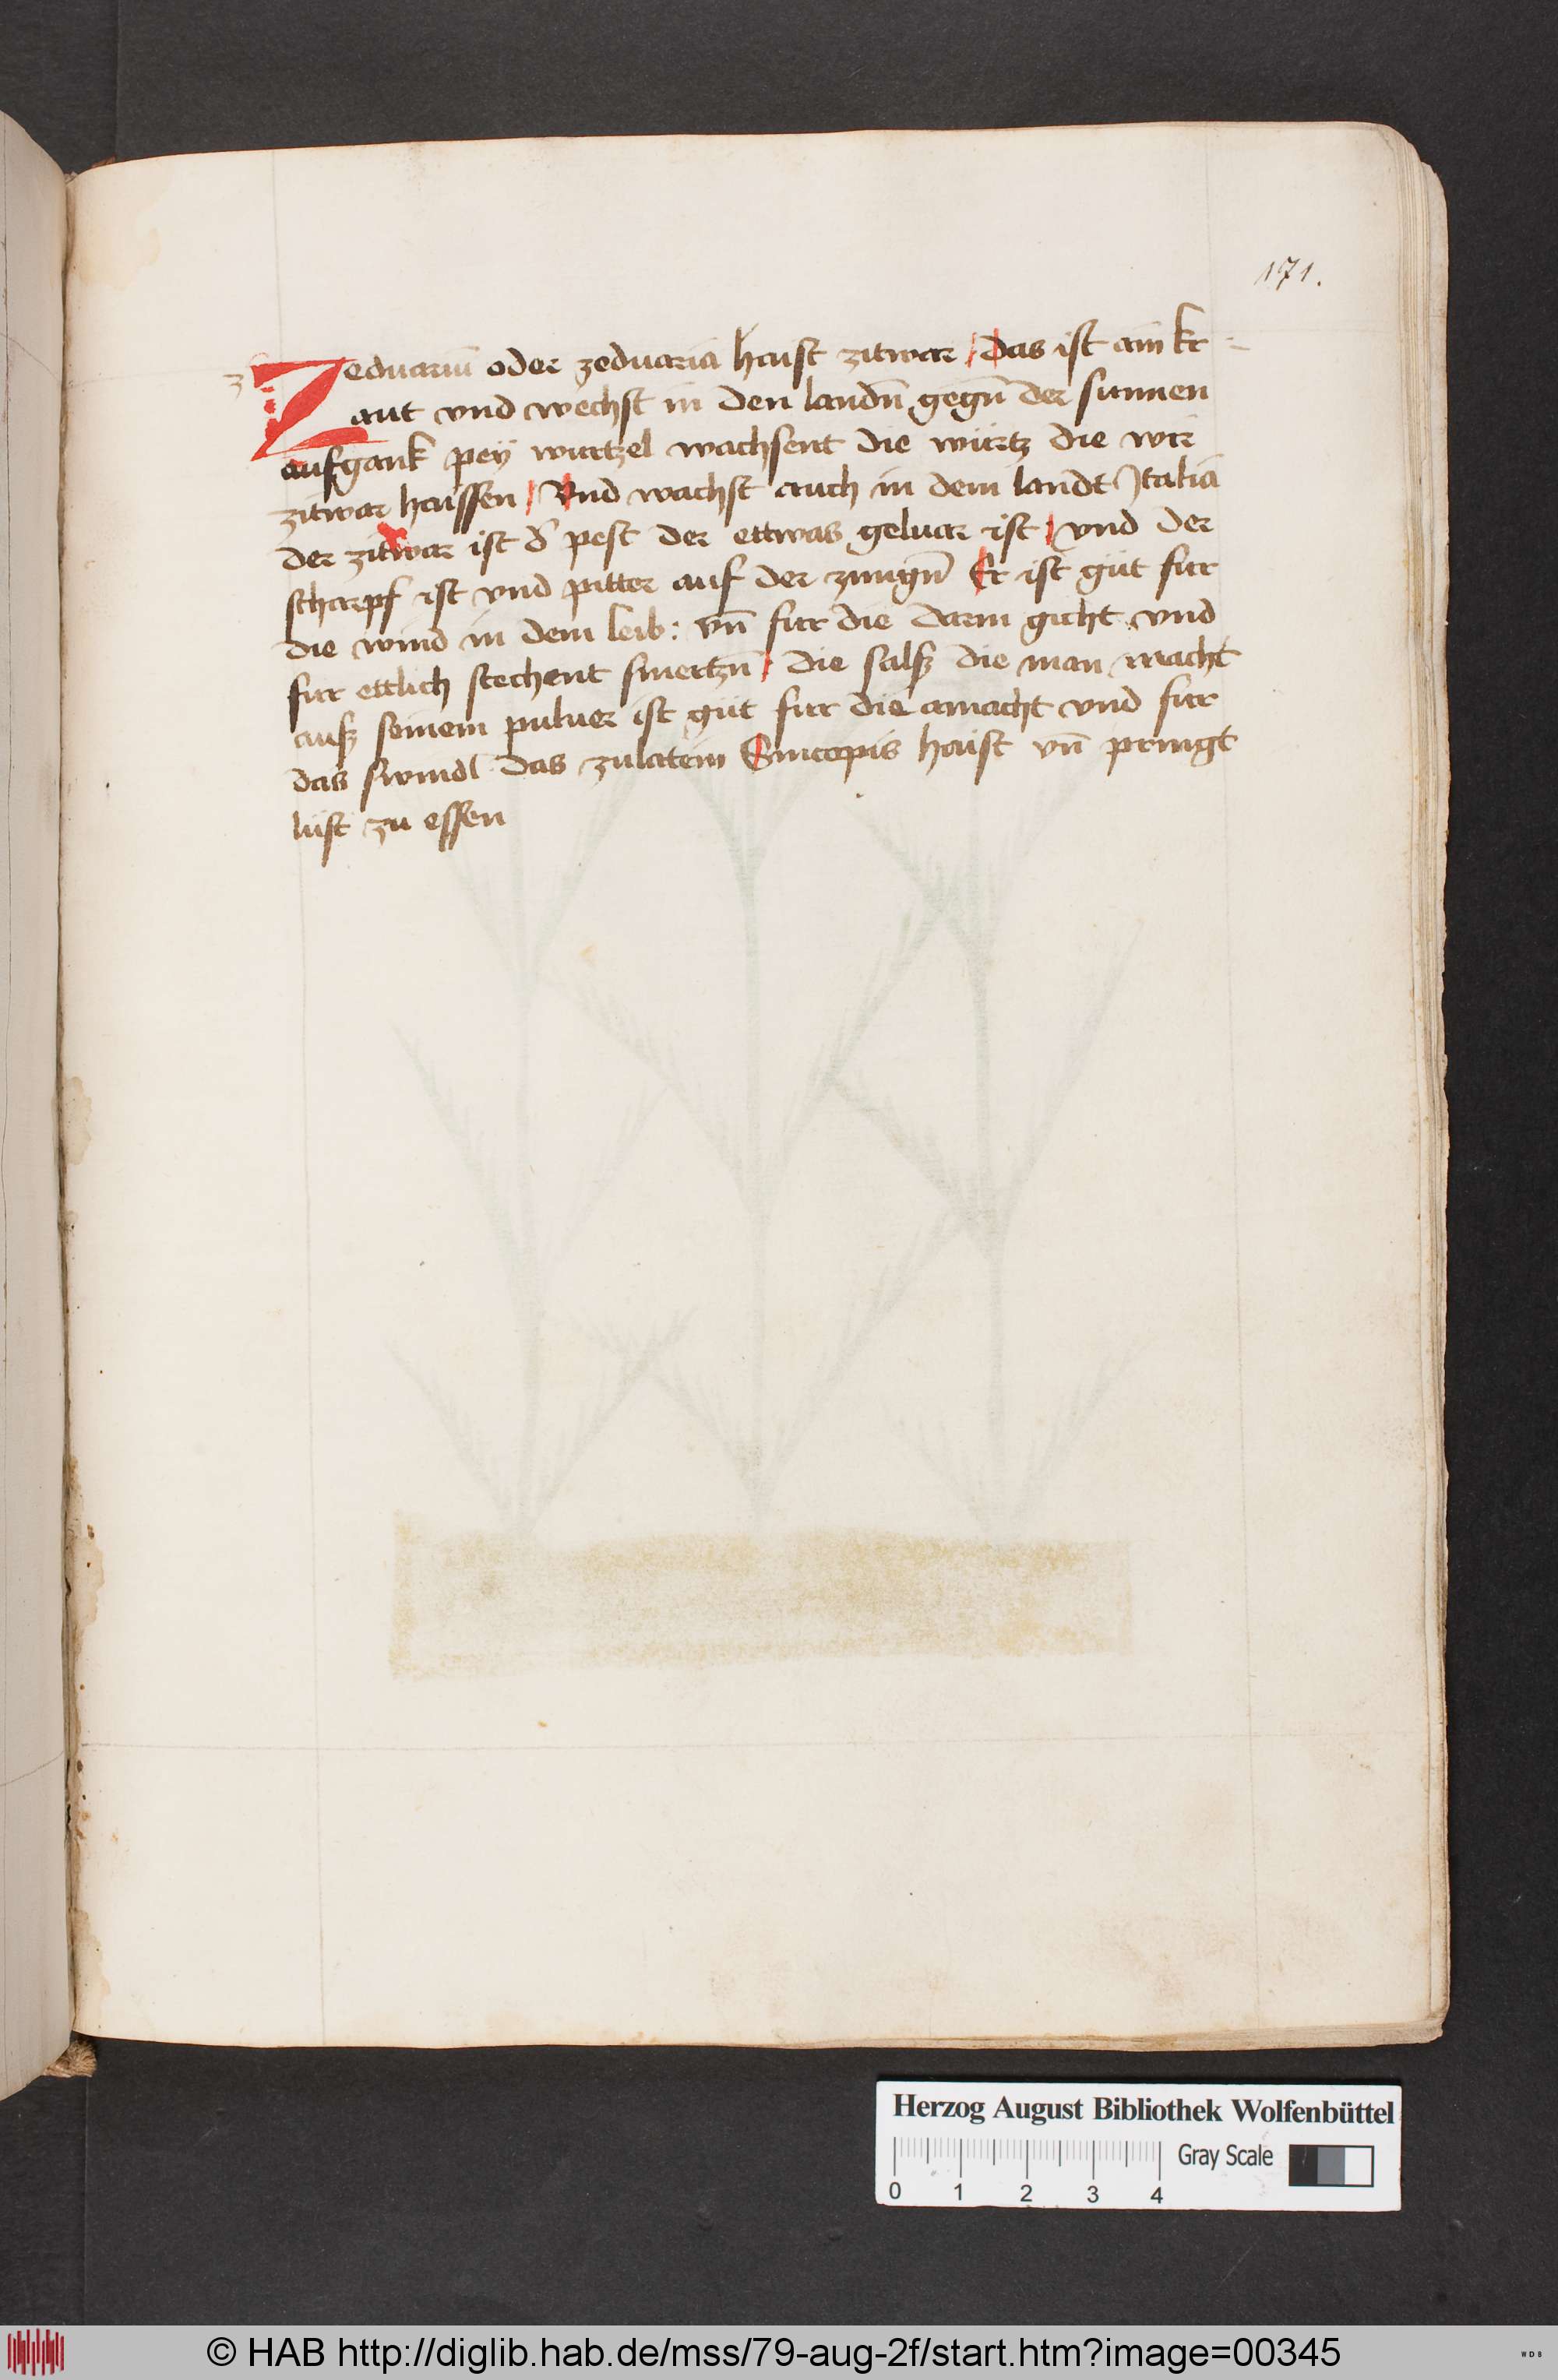 171.
z
Zeduariū oder zeduaria haist zitwar / Das ist ain kr=
aut vnd wechst in den landn̄ gegn̄ der sunnen
aufgank pey wurtzel wachsent die würtz die wir
zitwar haissen / Vnd wachst auch in dem landt Jtalia
der zitwar ist d̾ pest der ettwas geluar ist / vnd der
scharpf ist vnd pitter auf der zungn̄ Er ist güt fur
die wind in dem leib : vn̄ fur die darm gicht vnd
fur ettlich stechent smertzn̄ / die salsz die man macht
ausz seinem puluer ist güt fur die amacht vnd fur
das swindl das zulatein Sincopis haist vn̄ pringt
lust zu essen
Herzog August Bibliothek Wolfenbüttel
Gray Scale
0 1 2 3 4
© HAB http://diglib.hab.de/mss/79-aug-2f/start.htm?image=00345
WDB